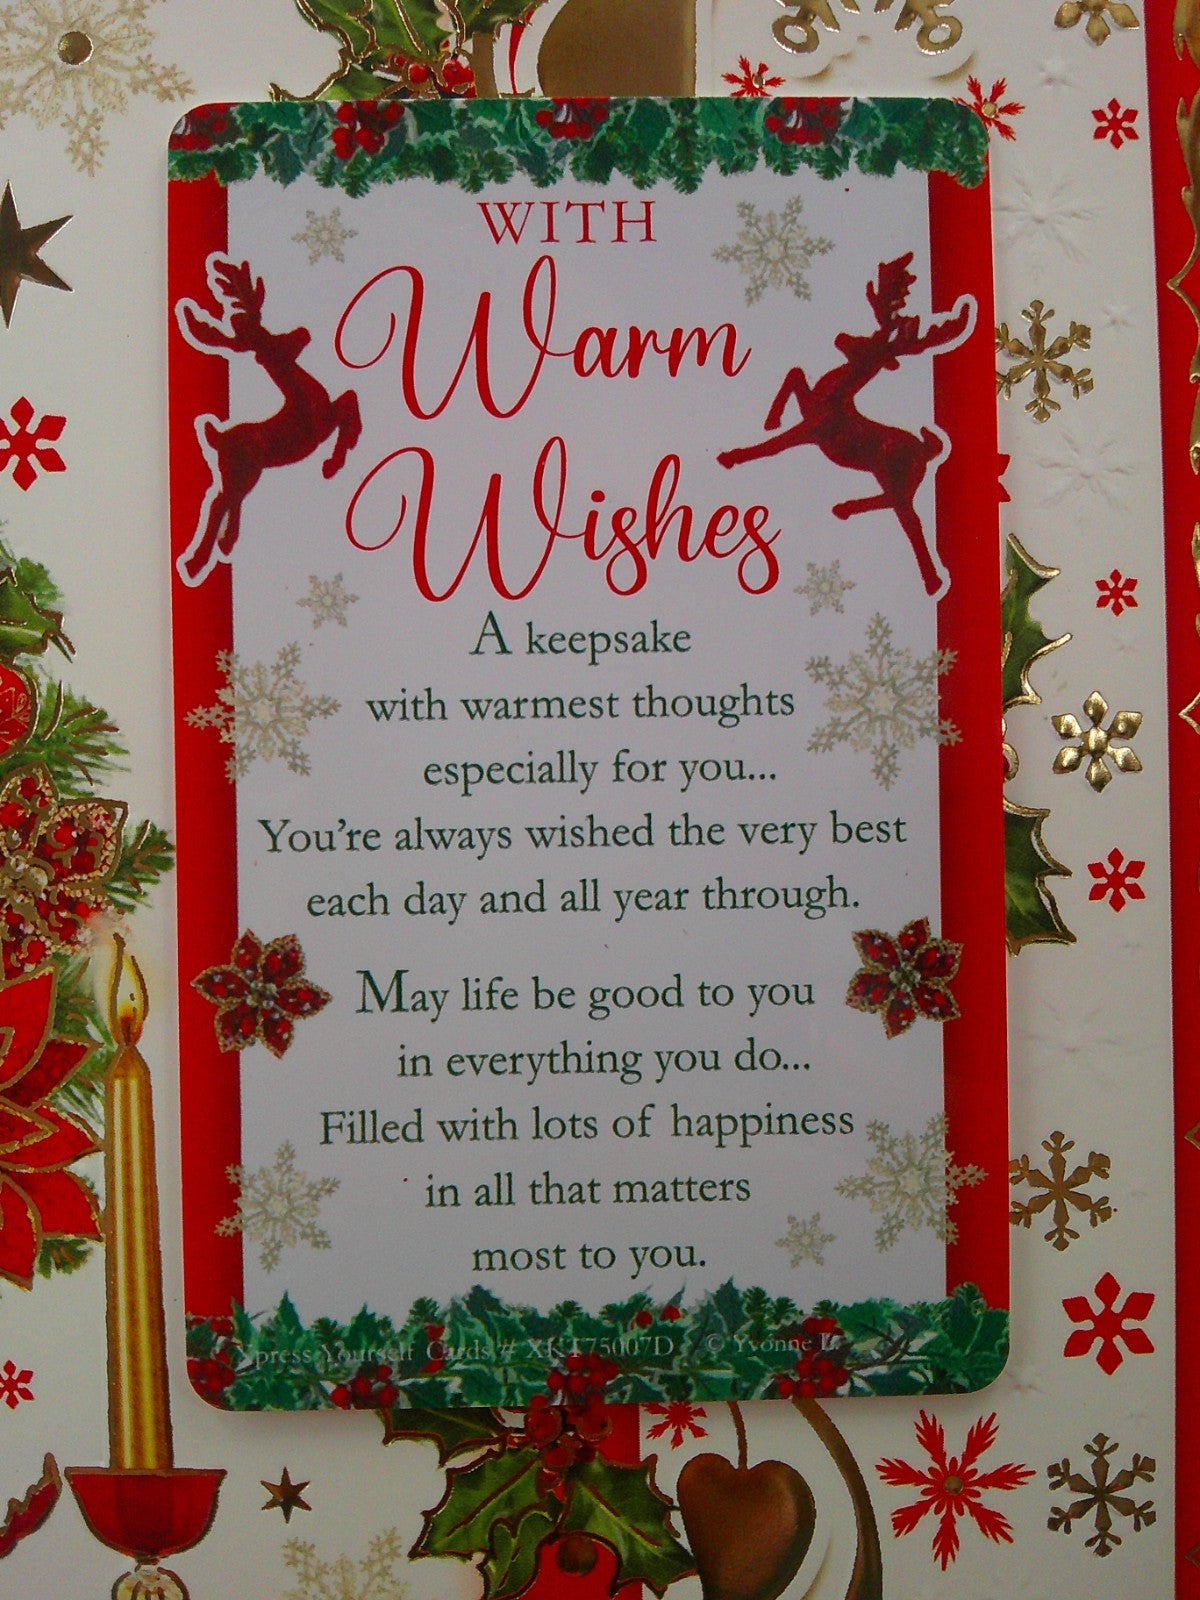 WITH
Warm
Wishes
A keepsake
with warmest thoughts
especially for you...
You're always wished the very best
each day and all year through.
May life be good to you
in everything you do...
Filled with lots of happiness
in all that matters
most to you.
Xpress Yourself Cards # XKT75007D © Yvonne L.